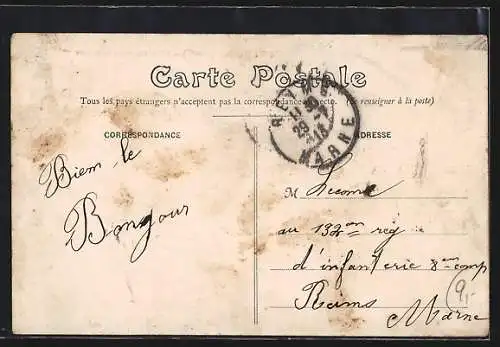 Carte Postale
Tous les pays étrangers n'acceptent pas la correspondance au recto. (Se renseigner à la poste)
CORRESPONDANCE
ADRESSE
MARNE
Biem le
Bonjour
M
au 132em reg
d'infanterie 8em comp
Reims
Marne
9,-